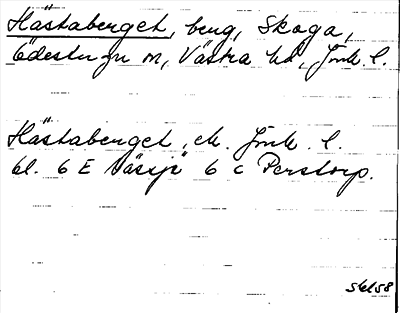 Hästaberget, berg, Skoga,
Ödestugu sn, Västra hd, Jönk. l.
Hästaberget, ek. Jönk. l.
bl. 6 E Nässjö 6 c Perstorp.